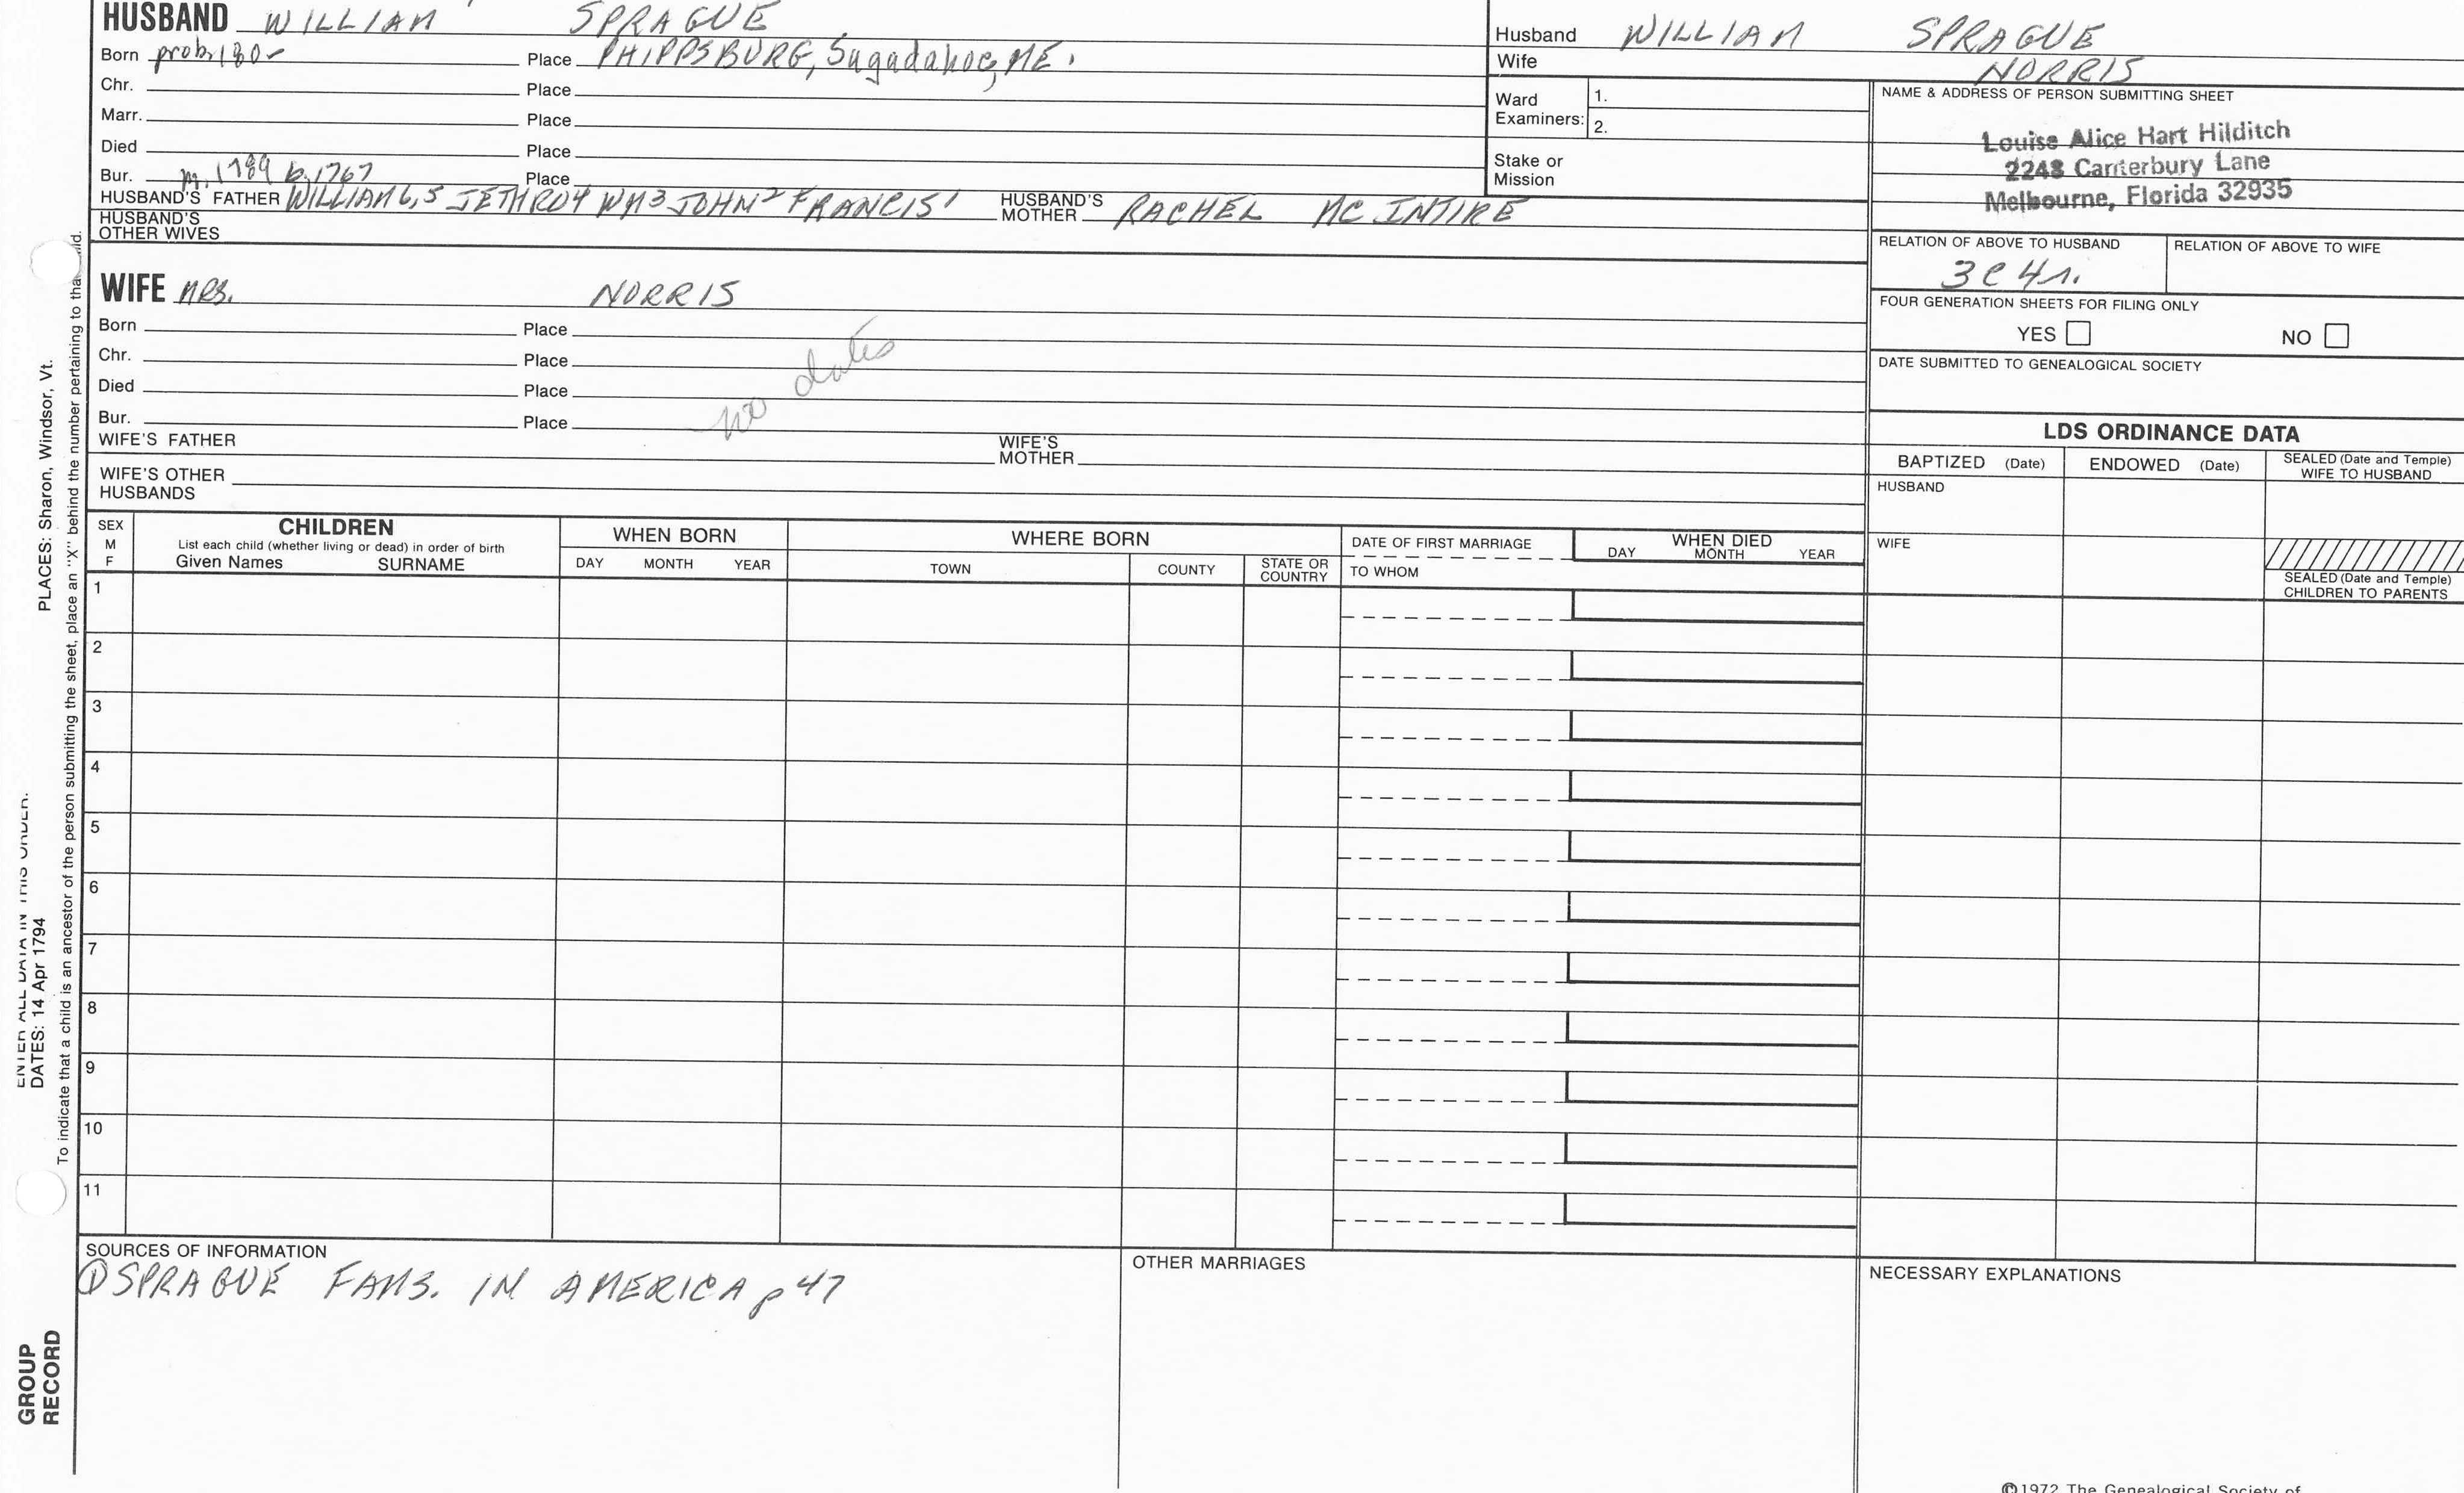 HUSBAND WILLIAM SPRAGUE
Born prob. 180- Place PHIPPSBURG, Sagadahoc, ME.
Chr. Place
Marr. Place
Died Place
Bur. m. 1789 b. 1767 Place
HUSBAND'S FATHER WILLIAM 6, 5 JETHRO4 WM3 JOHN2 FRANCIS1 HUSBAND'S MOTHER RACHEL MC INTIRE
HUSBAND'S OTHER WIVES
WIFE MRS. NORRIS
Born Place
Chr. Place
Died Place
Bur. Place
no dates
WIFE'S FATHER WIFE'S MOTHER
WIFE'S OTHER HUSBANDS
Husband WILLIAM SPRAGUE
Wife NORRIS
Ward Examiners: 1.
2.
Stake or Mission
NAME & ADDRESS OF PERSON SUBMITTING SHEET
Louise Alice Hart Hilditch
2248 Canterbury Lane
Melbourne, Florida 32935
RELATION OF ABOVE TO HUSBAND RELATION OF ABOVE TO WIFE
3C 4r.
FOUR GENERATION SHEETS FOR FILING ONLY
YES NO
DATE SUBMITTED TO GENEALOGICAL SOCIETY
LDS ORDINANCE DATA
BAPTIZED (Date) ENDOWED (Date) SEALED (Date and Temple) WIFE TO HUSBAND
HUSBAND
WIFE
SEALED (Date and Temple)
CHILDREN TO PARENTS
SEX
M
F
CHILDREN
List each child (whether living or dead) in order of birth
Given Names SURNAME
WHEN BORN
DAY MONTH YEAR
WHERE BORN
TOWN COUNTY STATE OR COUNTRY
DATE OF FIRST MARRIAGE
TO WHOM
WHEN DIED
DAY MONTH YEAR
1
2
3
4
5
6
7
8
9
10
11
SOURCES OF INFORMATION
① SPRAGUE FAMS. IN AMERICA p 47
OTHER MARRIAGES
NECESSARY EXPLANATIONS
©1972 The Genealogical Society of
ENTER ALL DATA IN THIS ORDER.
DATES: 14 Apr 1794 PLACES: Sharon, Windsor, Vt.
To indicate that a child is an ancestor of the person submitting the sheet, place an "X" behind the number pertaining to that child.
GROUP
RECORD